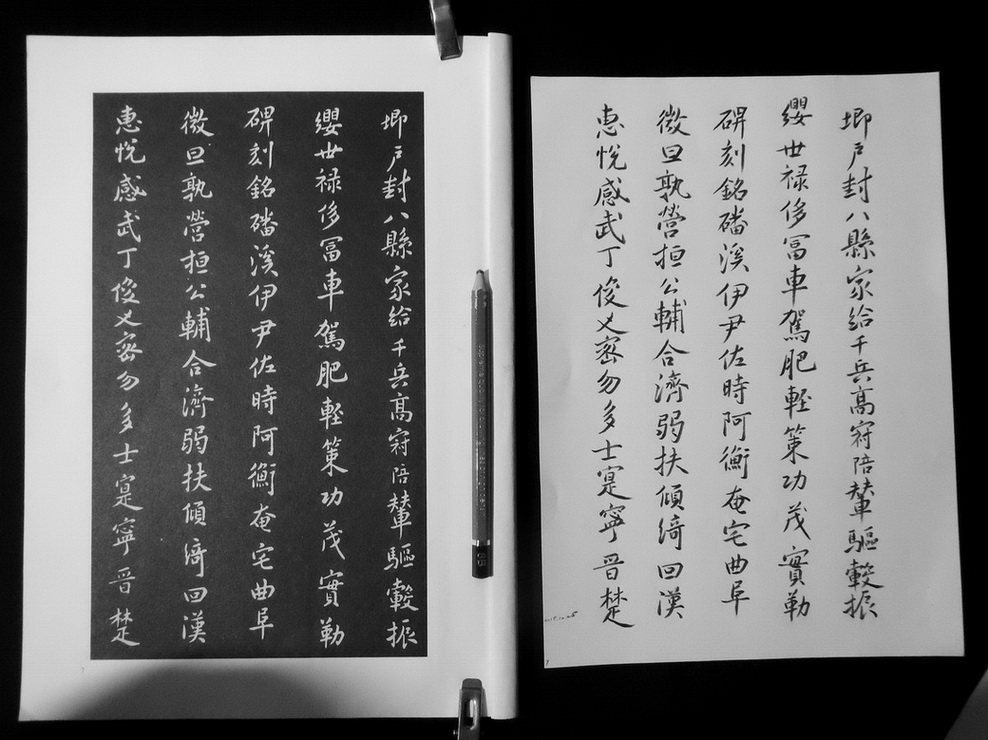 卿戶封八縣家給千兵高冠陪輦驅轂振
纓世禄侈冨車駕肥輕策功茂實勒
碑刻銘磻溪伊尹佐時阿衡奄宅曲阜
微旦孰營桓公輔合濟弱扶傾綺回漢
惠悅感武丁俊乂密勿多士寔寧晉楚
卿戶封八縣家給千兵高冠陪輦驅轂振
纓世禄侈冨車駕肥輕策功茂實勒
碑刻銘磻溪伊尹佐時阿衡奄宅曲阜
微旦孰營桓公輔合濟弱扶傾綺回漢
惠悅感武丁俊乂密勿多士寔寧晉楚